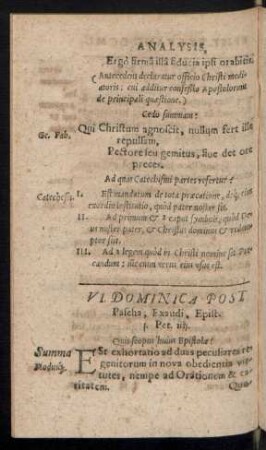 ANALYSIS,
Ergò firmâ illâ fiducia ipsi orabitis.
(Antecedens declaratur officio Christi medi-
atoris: cui additur confessio Apostolorum
de principali quæstione.)
Cedo summam?
Ge. Fab.
Qui Christum agnoscit, nullum fert ille
repulsum,
Pectore seu gemitus, siue det ore
preces.
Ad quas Catechismi partes refertur?
Catechesis.
I. Est mandatum de tota precatione,
exordio institutio, quòd pater noster sit.
II. Ad primum & 2 caput symboli, quòd De-
us noster pater, & Christus dominus &
pter sit.
III. Ad legem quòd in Christi nomine sit
candum:
VI. DOMINICA POST
Pascha, Exaudi, Epist.
1. Pet. iiij.
Quis scopus huius Epistolæ?
Summa
EST exhortatio ad duas peculiares re-
genitorum in nova obedientia vir-
tutes, nempe ad Orationem & ca-
ritatem.